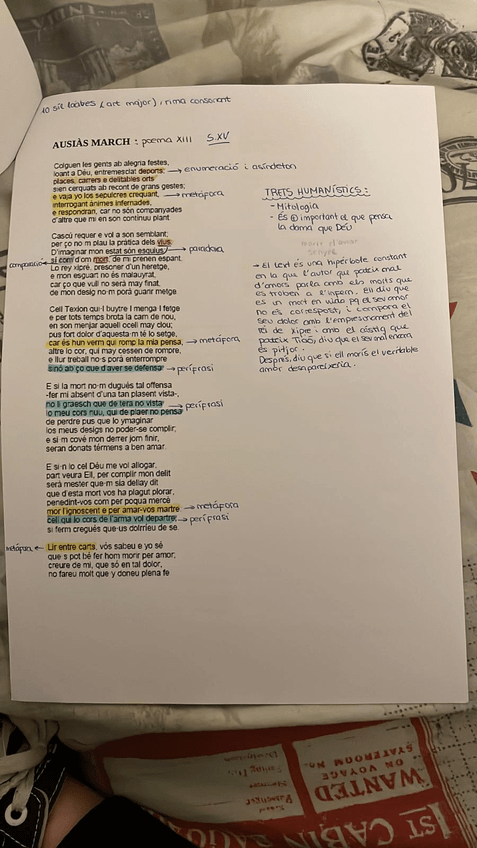 10 síl·labes (art major) i rima consonant
AUSIÀS MARCH : poema XIII S.XV
Colguen les gents ab alegria festes,
loant a Déu, entremesclat deports;
places, carrers e delitables orts
sien cerquats ab recont de grans gestes;
e vaja yo los sepulcres cerquant,
interrogant ànimes infernades,
e respondran, car no són companyades
d'altre que mi en son continuu plant.
→ enumeració i asíndeton
→ metáfora
Cascú requer e vol a son semblant;
per ço no·m plau la pràtica dels vius.
D'imaginar mon estat són esquius;
sí com d'om mort, de mi prenen espant.
Lo rey xipré, presoner d'un heretge,
e mon esguart no és malauyrat,
car ço que vull no serà may finat,
de mon desig no·m porà guarir metge.
→ paradoxa
comparació
Cell Texion qui·l buytre·l menga·l fetge
e per tots temps brota la carn de nou,
en son menjar aquell ocell may clou;
pus fort dolor d'aquesta·m té lo setge,
car és hun verm qui romp la mia pensa,
altre lo cor, qui may cessen de rompre,
e llur treball no·s porà enterrompre
sinó ab ço que d'aver se defensa.
→ metáfora
→ perífrasi
E si la mort no·m dugués tal offensa
-fer mi absent d'una tan plasent vista-,
no li graesch que de tera no vista
lo meu cors nuu, qui de plaer no pensa
de perdre pus que lo ymaginar
los meus desigs no poder-se complir;
e si·m cové mon derrer jorn finir,
seran donats térmens a ben amar.
→ perífrasi
E si·n lo cel Déu me vol allogar,
part veura Ell, per complir mon delit
serà mester que·m sia dellay dit
que d'esta mort vos ha plagut plorar,
penedint-vos com per poqua mercè
mor l'ignoscent e per amar-vos martre
cell qui lo cors de l'arma vol departre,
si ferm cregués que·us dolrríeu de se.
→ metáfora
→ perífrasi
metáfora ←
Lir entre carts, vós sabeu e yo sé
que·s pot bé fer hom morir per amor;
creure de mi, que só en tal dolor,
no fareu molt que y doneu plena fe
TRETS HUMANÍSTICS:
- Mitologia
- És + important el que pensa
la dama que Déu
→ El text és una hipérbole constant
en la que l'autor que pateix mal
d'amors parla amb els morts que
es troben a l'infern. Ell diu que
és un mort en vida pq el seu amor
no és correspost, i compara el
seu dolor amb l'empresonament del
rei de Xipre i amb el càstig que
pateix Tició, diu que el seu mal encara
és pitjor.
Després diu que si ell morís el vertader
amor desapareixeria.
1ST CABIN
WANTED
ON VOYAGE
STATEROOM NO.